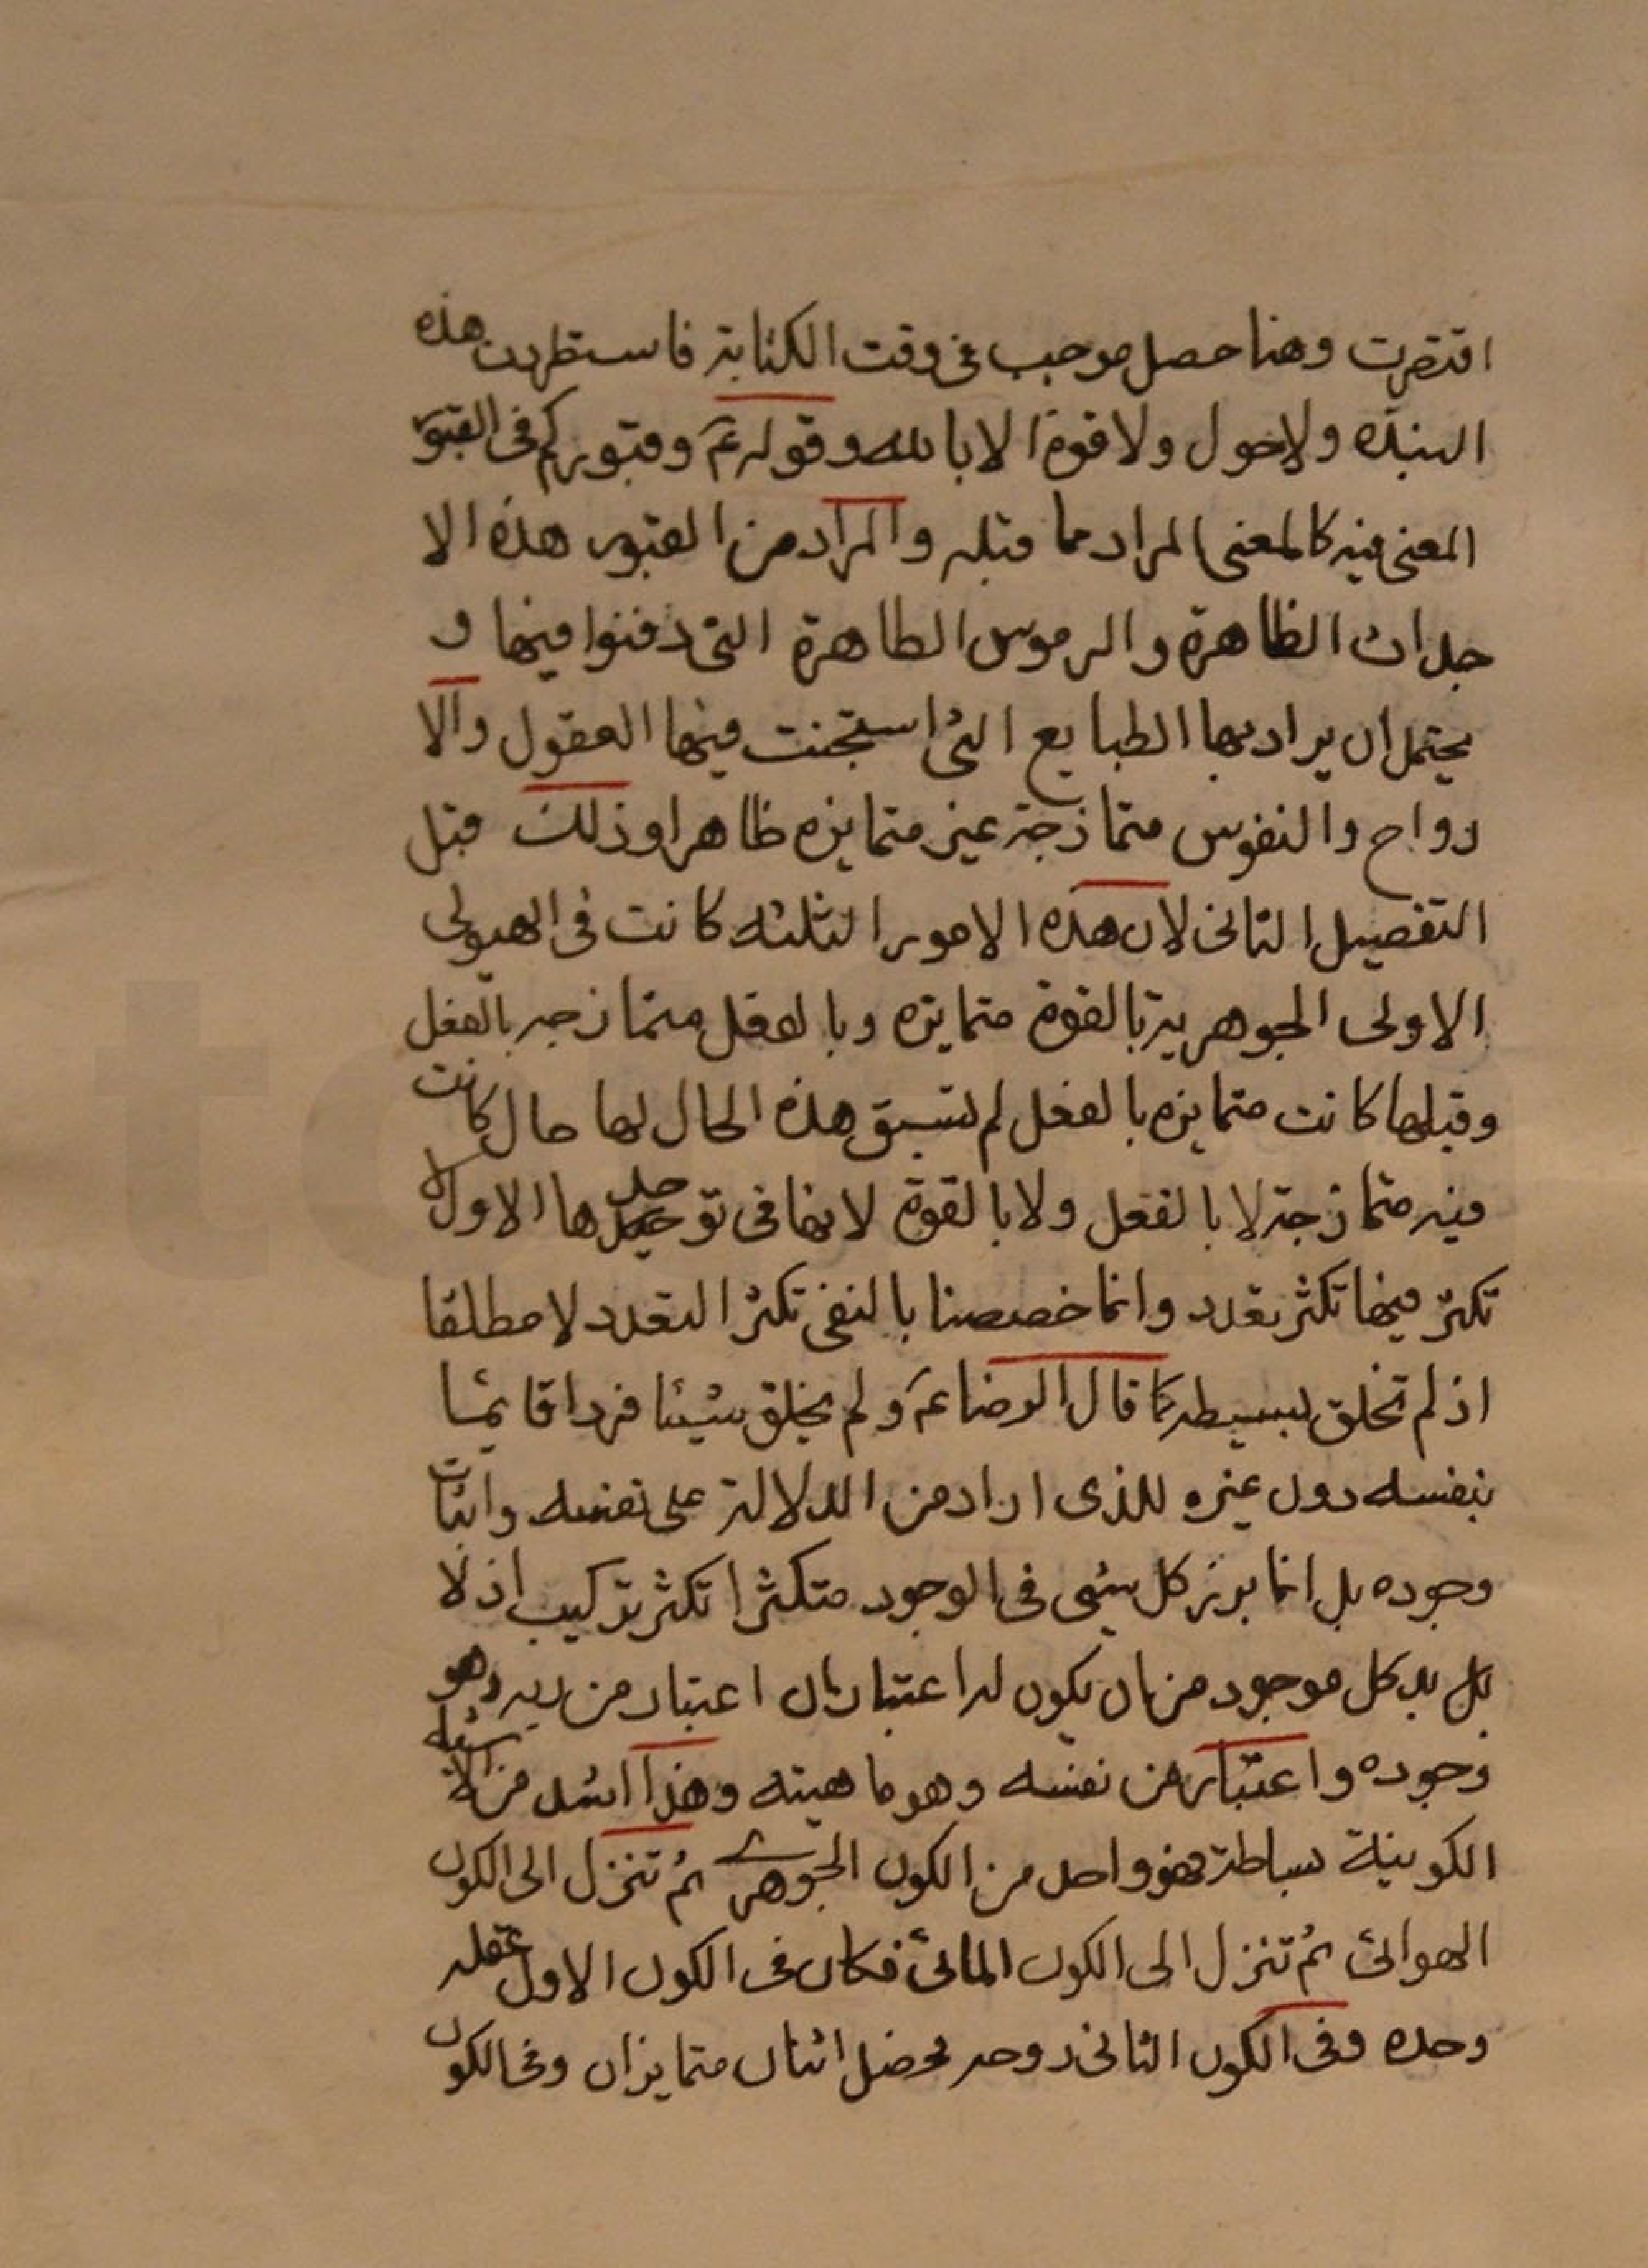 اقتضرت وهنا حصل موجب فى وقت الكتابة فاستطردت هذه
النبذه ولاحول ولا قوة الا بالله وقوله عَ وقبوركم فى القبور
المعنى فيه كالمعنى المراد مما قبله والمراد من القبور هذه الا
جداث الظاهرة والرموس الطاهرة التى دفنوا فيها و
يحتمل ان يراد بها الطبايع التى استجنت فيها العقول والا
رواح والنفوس متمازجة غير متمايزه ظاهرا وذلك قبل
التفصيل الثانى لان هذه الامور الثلثه كانت فى الهيولى
الاولى الجوهرية بالقوة متمايزه وبالعقل متمازجه بالفعل
وقبلها كانت متمايزه بالفعل لم تسبق هذه الحال لها حال كانت
فيه متمازجة لا بالفعل ولا بالقوة لانها فى توحدها الاول لا
تكثر فيها تكثر تعدد وانما خصصنا بالنفى تكثر التعدد لا مطلقا
اذ لم تخلق بسيطه كما قال الرضا عَ ولم يخلق شيئا فردا قايمًا
بنفسه دون غيره للذى اراد من الدلالة على نفسه واثبات
وجوده بل انما برز كل شئى فى الوجود متكثرا تكثر تركيب اذ لا
بد لكل موجود من ان يكون له اعتباران اعتبار من ربه وهو
وجوده واعتبار من نفسه وهو ماهيته وهذا اشد من الاشياء
الكونية بساطة فهو واحد من الكون الجوهرى ثم تنزل الى الكون
الهوائى ثم تنزل الى الكون المائى فكان فى الكون الاول عقله
وحده وفى الكون الثانى روحه فحصل اثنان متمايزان وفى الكون